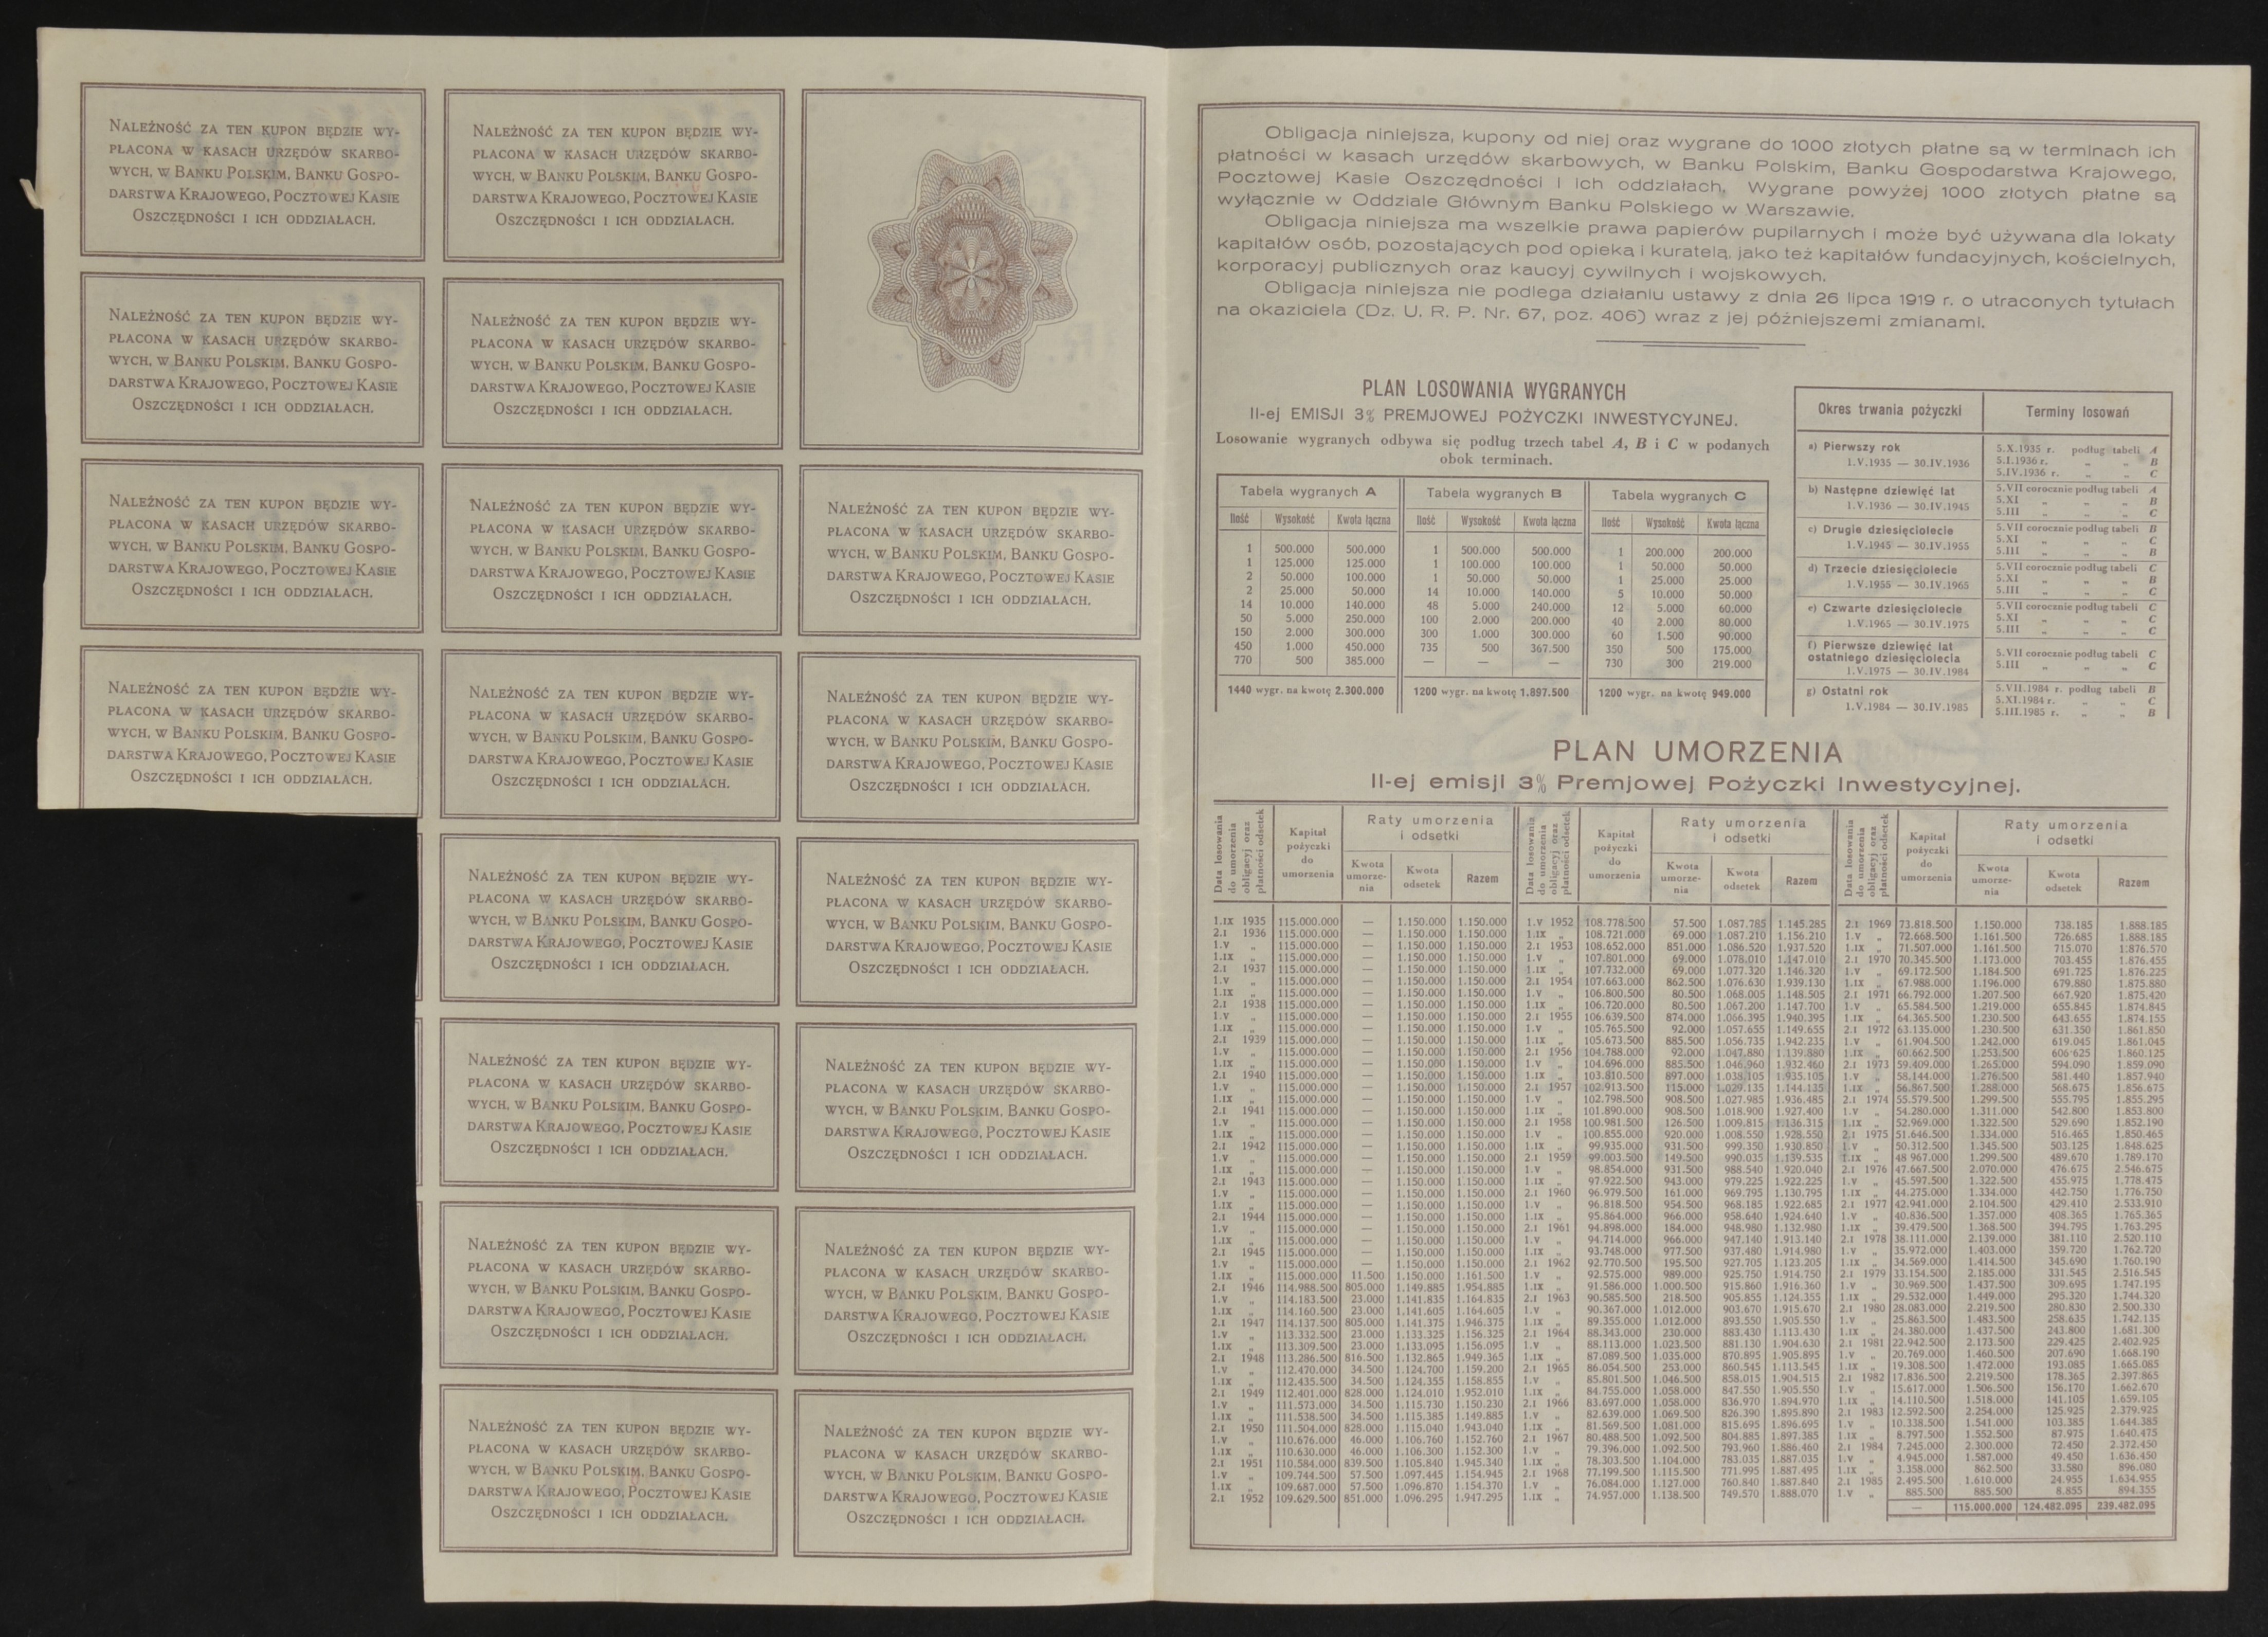 NALEŻNOŚĆ ZA TEN KUPON BĘDZIE WY-
PŁACONA W KASACH URZĘDÓW SKARBO-
WYCH, W BANKU POLSKIM, BANKU GOSPO-
DARSTWA KRAJOWEGO, POCZTOWEJ KASIE
OSZCZĘDNOŚCI I ICH ODDZIAŁACH.
NALEŻNOŚĆ ZA TEN KUPON BĘDZIE WY-
PŁACONA W KASACH URZĘDÓW SKARBO-
WYCH, W BANKU POLSKIM, BANKU GOSPO-
DARSTWA KRAJOWEGO, POCZTOWEJ KASIE
OSZCZĘDNOŚCI I ICH ODDZIAŁACH.
NALEŻNOŚĆ ZA TEN KUPON BĘDZIE WY-
PŁACONA W KASACH URZĘDÓW SKARBO-
WYCH, W BANKU POLSKIM, BANKU GOSPO-
DARSTWA KRAJOWEGO, POCZTOWEJ KASIE
OSZCZĘDNOŚCI I ICH ODDZIAŁACH.
NALEŻNOŚĆ ZA TEN KUPON BĘDZIE WY-
PŁACONA W KASACH URZĘDÓW SKARBO-
WYCH, W BANKU POLSKIM, BANKU GOSPO-
DARSTWA KRAJOWEGO, POCZTOWEJ KASIE
OSZCZĘDNOŚCI I ICH ODDZIAŁACH.
NALEŻNOŚĆ ZA TEN KUPON BĘDZIE WY-
PŁACONA W KASACH URZĘDÓW SKARBO-
WYCH, W BANKU POLSKIM, BANKU GOSPO-
DARSTWA KRAJOWEGO, POCZTOWEJ KASIE
OSZCZĘDNOŚCI I ICH ODDZIAŁACH.
NALEŻNOŚĆ ZA TEN KUPON BĘDZIE WY-
PŁACONA W KASACH URZĘDÓW SKARBO-
WYCH, W BANKU POLSKIM, BANKU GOSPO-
DARSTWA KRAJOWEGO, POCZTOWEJ KASIE
OSZCZĘDNOŚCI I ICH ODDZIAŁACH.
NALEŻNOŚĆ ZA TEN KUPON BĘDZIE WY-
PŁACONA W KASACH URZĘDÓW SKARBO-
WYCH, W BANKU POLSKIM, BANKU GOSPO-
DARSTWA KRAJOWEGO, POCZTOWEJ KASIE
OSZCZĘDNOŚCI I ICH ODDZIAŁACH.
NALEŻNOŚĆ ZA TEN KUPON BĘDZIE WY-
PŁACONA W KASACH URZĘDÓW SKARBO-
WYCH, W BANKU POLSKIM, BANKU GOSPO-
DARSTWA KRAJOWEGO, POCZTOWEJ KASIE
OSZCZĘDNOŚCI I ICH ODDZIAŁACH.
NALEŻNOŚĆ ZA TEN KUPON BĘDZIE WY-
PŁACONA W KASACH URZĘDÓW SKARBO-
WYCH, W BANKU POLSKIM, BANKU GOSPO-
DARSTWA KRAJOWEGO, POCZTOWEJ KASIE
OSZCZĘDNOŚCI I ICH ODDZIAŁACH.
NALEŻNOŚĆ ZA TEN KUPON BĘDZIE WY-
PŁACONA W KASACH URZĘDÓW SKARBO-
WYCH, W BANKU POLSKIM, BANKU GOSPO-
DARSTWA KRAJOWEGO, POCZTOWEJ KASIE
OSZCZĘDNOŚCI I ICH ODDZIAŁACH.
NALEŻNOŚĆ ZA TEN KUPON BĘDZIE WY-
PŁACONA W KASACH URZĘDÓW SKARBO-
WYCH, W BANKU POLSKIM, BANKU GOSPO-
DARSTWA KRAJOWEGO, POCZTOWEJ KASIE
OSZCZĘDNOŚCI I ICH ODDZIAŁACH.
NALEŻNOŚĆ ZA TEN KUPON BĘDZIE WY-
PŁACONA W KASACH URZĘDÓW SKARBO-
WYCH, W BANKU POLSKIM, BANKU GOSPO-
DARSTWA KRAJOWEGO, POCZTOWEJ KASIE
OSZCZĘDNOŚCI I ICH ODDZIAŁACH.
NALEŻNOŚĆ ZA TEN KUPON BĘDZIE WY-
PŁACONA W KASACH URZĘDÓW SKARBO-
WYCH, W BANKU POLSKIM, BANKU GOSPO-
DARSTWA KRAJOWEGO, POCZTOWEJ KASIE
OSZCZĘDNOŚCI I ICH ODDZIAŁACH.
NALEŻNOŚĆ ZA TEN KUPON BĘDZIE WY-
PŁACONA W KASACH URZĘDÓW SKARBO-
WYCH, W BANKU POLSKIM, BANKU GOSPO-
DARSTWA KRAJOWEGO, POCZTOWEJ KASIE
OSZCZĘDNOŚCI I ICH ODDZIAŁACH.
NALEŻNOŚĆ ZA TEN KUPON BĘDZIE WY-
PŁACONA W KASACH URZĘDÓW SKARBO-
WYCH, W BANKU POLSKIM, BANKU GOSPO-
DARSTWA KRAJOWEGO, POCZTOWEJ KASIE
OSZCZĘDNOŚCI I ICH ODDZIAŁACH.
NALEŻNOŚĆ ZA TEN KUPON BĘDZIE WY-
PŁACONA W KASACH URZĘDÓW SKARBO-
WYCH, W BANKU POLSKIM, BANKU GOSPO-
DARSTWA KRAJOWEGO, POCZTOWEJ KASIE
OSZCZĘDNOŚCI I ICH ODDZIAŁACH.
NALEŻNOŚĆ ZA TEN KUPON BĘDZIE WY-
PŁACONA W KASACH URZĘDÓW SKARBO-
WYCH, W BANKU POLSKIM, BANKU GOSPO-
DARSTWA KRAJOWEGO, POCZTOWEJ KASIE
OSZCZĘDNOŚCI I ICH ODDZIAŁACH.
NALEŻNOŚĆ ZA TEN KUPON BĘDZIE WY-
PŁACONA W KASACH URZĘDÓW SKARBO-
WYCH, W BANKU POLSKIM, BANKU GOSPO-
DARSTWA KRAJOWEGO, POCZTOWEJ KASIE
OSZCZĘDNOŚCI I ICH ODDZIAŁACH.
Obligacja niniejsza, kupony od niej oraz wygrane do 1000 złotych płatne są w terminach ich
płatności w kasach urzędów skarbowych, w Banku Polskim, Banku Gospodarstwa Krajowego,
Pocztowej Kasie Oszczędności i ich oddziałach. Wygrane powyżej 1000 złotych płatne są
wyłącznie w Oddziale Głównym Banku Polskiego w Warszawie.
Obligacja niniejsza ma wszelkie prawa papierów pupilarnych i może być używana dla lokaty
kapitałów osób, pozostających pod opieką i kuratelą, jako też kapitałów fundacyjnych, kościelnych,
korporacyj publicznych oraz kaucyj cywilnych i wojskowych.
Obligacja niniejsza nie podlega działaniu ustawy z dnia 26 lipca 1919 r. o utraconych tytułach
na okaziciela (Dz. U. R. P. Nr. 67, poz. 406) wraz z jej późniejszemi zmianami.
PLAN LOSOWANIA WYGRANYCH
II-ej EMISJI 3% PREMJOWEJ POŻYCZKI INWESTYCYJNEJ.
Losowanie wygranych odbywa się podług trzech tabel A, B i C w podanych
obok terminach.
Tabela wygranych A
Ilość Wysokość Kwota łączna
1 500.000 500.000
1 125.000 125.000
2 50.000 100.000
2 25.000 50.000
14 10.000 140.000
50 5.000 250.000
150 2.000 300.000
450 1.000 450.000
770 500 385.000
1440 wygr. na kwotę 2.300.000
Tabela wygranych B
Ilość Wysokość Kwota łączna
1 500.000 500.000
1 100.000 100.000
1 50.000 50.000
14 10.000 140.000
48 5.000 240.000
100 2.000 200.000
300 1.000 300.000
735 500 367.500
— — —
1200 wygr. na kwotę 1.897.500
Tabela wygranych C
Ilość Wysokość Kwota łączna
1 200.000 200.000
1 50.000 50.000
1 25.000 25.000
5 10.000 50.000
12 5.000 60.000
40 2.000 80.000
60 1.500 90.000
350 500 175.000
730 300 219.000
1200 wygr. na kwotę 949.000
Okres trwania pożyczki Terminy losowań
a) Pierwszy rok
1.V.1935 — 30.IV.1936
5.X.1935 r. podług tabeli A
5.I.1936 r. „ „ B
5.IV.1936 r. „ „ C
b) Następne dziewięć lat
1.V.1936 — 30.IV.1945
5.VII corocznie podług tabeli A
5.XI „ „ „ B
5.III „ „ „ C
c) Drugie dziesięciolecie
1.V.1945 — 30.IV.1955
5.VII corocznie podług tabeli B
5.XI „ „ „ C
5.III „ „ „ B
d) Trzecie dziesięciolecie
1.V.1955 — 30.IV.1965
5.VII corocznie podług tabeli C
5.XI „ „ „ B
5.III „ „ „ C
e) Czwarte dziesięciolecie
1.V.1965 — 30.IV.1975
5.VII corocznie podług tabeli C
5.XI „ „ „ C
5.III „ „ „ C
f) Pierwsze dziewięć lat
ostatniego dziesięciolecia
1.V.1975 — 30.IV.1984
5.VII corocznie podług tabeli C
5.III „ „ „ C
g) Ostatni rok
1.V.1984 — 30.IV.1985
5.VII.1984 r. podług tabeli B
5.XI.1984 r. „ „ C
5.III.1985 r. „ „ B
PLAN UMORZENIA
II-ej emisji 3% Premjowej Pożyczki Inwestycyjnej.
Data losowania
do umorzenia
obligacyj oraz
płatności odsetek
Kapitał
pożyczki
do
umorzenia
Raty umorzenia
i odsetki
Kwota
umorze-
nia
Kwota
odsetek
Razem
1.IX 1935 115.000.000 — 1.150.000 1.150.000
2.I 1936 115.000.000 — 1.150.000 1.150.000
1.V „ 115.000.000 — 1.150.000 1.150.000
1.IX „ 115.000.000 — 1.150.000 1.150.000
2.I 1937 115.000.000 — 1.150.000 1.150.000
1.V „ 115.000.000 — 1.150.000 1.150.000
1.IX „ 115.000.000 — 1.150.000 1.150.000
2.I 1938 115.000.000 — 1.150.000 1.150.000
1.V „ 115.000.000 — 1.150.000 1.150.000
1.IX „ 115.000.000 — 1.150.000 1.150.000
2.I 1939 115.000.000 — 1.150.000 1.150.000
1.V „ 115.000.000 — 1.150.000 1.150.000
1.IX „ 115.000.000 — 1.150.000 1.150.000
2.I 1940 115.000.000 — 1.150.000 1.150.000
1.V „ 115.000.000 — 1.150.000 1.150.000
1.IX „ 115.000.000 — 1.150.000 1.150.000
2.I 1941 115.000.000 — 1.150.000 1.150.000
1.V „ 115.000.000 — 1.150.000 1.150.000
1.IX „ 115.000.000 — 1.150.000 1.150.000
2.I 1942 115.000.000 — 1.150.000 1.150.000
1.V „ 115.000.000 — 1.150.000 1.150.000
1.IX „ 115.000.000 — 1.150.000 1.150.000
2.I 1943 115.000.000 — 1.150.000 1.150.000
1.V „ 115.000.000 — 1.150.000 1.150.000
1.IX „ 115.000.000 — 1.150.000 1.150.000
2.I 1944 115.000.000 — 1.150.000 1.150.000
1.V „ 115.000.000 — 1.150.000 1.150.000
1.IX „ 115.000.000 — 1.150.000 1.150.000
2.I 1945 115.000.000 — 1.150.000 1.150.000
1.V „ 115.000.000 — 1.150.000 1.150.000
1.IX „ 115.000.000 11.500 1.150.000 1.161.500
2.I 1946 114.988.500 805.000 1.149.885 1.954.885
1.V „ 114.183.500 23.000 1.141.835 1.164.835
1.IX „ 114.160.500 23.000 1.141.605 1.164.605
2.I 1947 114.137.500 805.000 1.141.375 1.946.375
1.V „ 113.332.500 23.000 1.133.325 1.156.325
1.IX „ 113.309.500 23.000 1.133.095 1.156.095
2.I 1948 113.286.500 816.500 1.132.865 1.949.365
1.V „ 112.470.000 34.500 1.124.700 1.159.200
1.IX „ 112.435.500 34.500 1.124.355 1.158.855
2.I 1949 112.401.000 828.000 1.124.010 1.952.010
1.V „ 111.573.000 34.500 1.115.730 1.150.230
1.IX „ 111.538.500 34.500 1.115.385 1.149.885
2.I 1950 111.504.000 828.000 1.115.040 1.943.040
1.V „ 110.676.000 46.000 1.106.760 1.152.760
1.IX „ 110.630.000 46.000 1.106.300 1.152.300
2.I 1951 110.584.000 839.500 1.105.840 1.945.340
1.V „ 109.744.500 57.500 1.097.445 1.154.945
1.IX „ 109.687.000 57.500 1.096.870 1.154.370
2.I 1952 109.629.500 851.000 1.096.295 1.947.295
Data losowania
do umorzenia
obligacyj oraz
płatności odsetek
Kapitał
pożyczki
do
umorzenia
Raty umorzenia
i odsetki
Kwota
umorze-
nia
Kwota
odsetek
Razem
1.V 1952 108.778.500 57.500 1.087.785 1.145.285
1.IX „ 108.721.000 69.000 1.087.210 1.156.210
2.I 1953 108.652.000 851.000 1.086.520 1.937.520
1.V „ 107.801.000 69.000 1.078.010 1.147.010
1.IX „ 107.732.000 69.000 1.077.320 1.146.320
2.I 1954 107.663.000 862.500 1.076.630 1.939.130
1.V „ 106.800.500 80.500 1.068.005 1.148.505
1.IX „ 106.720.000 80.500 1.067.200 1.147.700
2.I 1955 106.639.500 874.000 1.066.395 1.940.395
1.V „ 105.765.500 92.000 1.057.655 1.149.655
1.IX „ 105.673.500 885.500 1.056.735 1.942.235
2.I 1956 104.788.000 92.000 1.047.880 1.139.880
1.V „ 104.696.000 885.500 1.046.960 1.932.460
1.IX „ 103.810.500 897.000 1.038.105 1.935.105
2.I 1957 102.913.500 115.000 1.029.135 1.144.135
1.V „ 102.798.500 908.500 1.027.985 1.936.485
1.IX „ 101.890.000 908.500 1.018.900 1.927.400
2.I 1958 100.981.500 126.500 1.009.815 1.136.315
1.V „ 100.855.000 920.000 1.008.550 1.928.550
1.IX „ 99.935.000 931.500 999.350 1.930.850
2.I 1959 99.003.500 149.500 990.035 1.139.535
1.V „ 98.854.000 931.500 988.540 1.920.040
1.IX „ 97.922.500 943.000 979.225 1.922.225
2.I 1960 96.979.500 161.000 969.795 1.130.795
1.V „ 96.818.500 954.500 968.185 1.922.685
1.IX „ 95.864.000 966.000 958.640 1.924.640
2.I 1961 94.898.000 184.000 948.980 1.132.980
1.V „ 94.714.000 966.000 947.140 1.913.140
1.IX „ 93.748.000 977.500 937.480 1.914.980
2.I 1962 92.770.500 195.500 927.705 1.123.205
1.V „ 92.575.000 989.000 925.750 1.914.750
1.IX „ 91.586.000 1.000.500 915.860 1.916.360
2.I 1963 90.585.500 218.500 905.855 1.124.355
1.V „ 90.367.000 1.012.000 903.670 1.915.670
1.IX „ 89.355.000 1.012.000 893.550 1.905.550
2.I 1964 88.343.000 230.000 883.430 1.113.430
1.V „ 88.113.000 1.023.500 881.130 1.904.630
1.IX „ 87.089.500 1.035.000 870.895 1.905.895
2.I 1965 86.054.500 253.000 860.545 1.113.545
1.V „ 85.801.500 1.046.500 858.015 1.904.515
1.IX „ 84.755.000 1.058.000 847.550 1.905.550
2.I 1966 83.697.000 1.058.000 836.970 1.894.970
1.V „ 82.639.000 1.069.500 826.390 1.895.890
1.IX „ 81.569.500 1.081.000 815.695 1.896.695
2.I 1967 80.488.500 1.092.500 804.885 1.897.385
1.V „ 79.396.000 1.092.500 793.960 1.886.460
1.IX „ 78.303.500 1.104.000 783.035 1.887.035
2.I 1968 77.199.500 1.115.500 771.995 1.887.495
1.V „ 76.084.000 1.127.000 760.840 1.887.840
1.IX „ 74.957.000 1.138.500 749.570 1.888.070
Data losowania
do umorzenia
obligacyj oraz
płatności odsetek
Kapitał
pożyczki
do
umorzenia
Raty umorzenia
i odsetki
Kwota
umorze-
nia
Kwota
odsetek
Razem
2.I 1969 73.818.500 1.150.000 738.185 1.888.185
1.V „ 72.668.500 1.161.500 726.685 1.888.185
1.IX „ 71.507.000 1.161.500 715.070 1.876.570
2.I 1970 70.345.500 1.173.000 703.455 1.876.455
1.V „ 69.172.500 1.184.500 691.725 1.876.225
1.IX „ 67.988.000 1.196.000 679.880 1.875.880
2.I 1971 66.792.000 1.207.500 667.920 1.875.420
1.V „ 65.584.500 1.219.000 655.845 1.874.845
1.IX „ 64.365.500 1.230.500 643.655 1.874.155
2.I 1972 63.135.000 1.230.500 631.350 1.861.850
1.V „ 61.904.500 1.242.000 619.045 1.861.045
1.IX „ 60.662.500 1.253.500 606·625 1.860.125
2.I 1973 59.409.000 1.265.000 594.090 1.859.090
1.V „ 58.144.000 1.276.500 581.440 1.857.940
1.IX „ 56.867.500 1.288.000 568.675 1.856.675
2.I 1974 55.579.500 1.299.500 555.795 1.855.295
1.V „ 54.280.000 1.311.000 542.800 1.853.800
1.IX „ 52.969.000 1.322.500 529.690 1.852.190
2.I 1975 51.646.500 1.334.000 516.465 1.850.465
1.V „ 50.312.500 1.345.500 503.125 1.848.625
1.IX „ 48 967.000 1.299.500 489.670 1.789.170
2.I 1976 47.667.500 2.070.000 476.675 2.546.675
1.V „ 45.597.500 1.322.500 455.975 1.778.475
1.IX „ 44.275.000 1.334.000 442.750 1.776.750
2.I 1977 42.941.000 2.104.500 429.410 2.533.910
1.V „ 40.836.500 1.357.000 408.365 1.765.365
1.IX „ 39.479.500 1.368.500 394.795 1.763.295
2.I 1978 38.111.000 2.139.000 381.110 2.520.110
1.V „ 35.972.000 1.403.000 359.720 1.762.720
1.IX „ 34.569.000 1.414.500 345.690 1.760.190
2.I 1979 33.154.500 2.185.000 331.545 2.516.545
1.V „ 30.969.500 1.437.500 309.695 1.747.195
1.IX „ 29.532.000 1.449.000 295.320 1.744.320
2.I 1980 28.083.000 2.219.500 280.830 2.500.330
1.V „ 25.863.500 1.483.500 258.635 1.742.135
1.IX „ 24.380.000 1.437.500 243.800 1.681.300
2.I 1981 22.942.500 2.173.500 229.425 2.402.925
1.V „ 20.769.000 1.460.500 207.690 1.668.190
1.IX „ 19.308.500 1.472.000 193.085 1.665.085
2.I 1982 17.836.500 2.219.500 178.365 2.397.865
1.V „ 15.617.000 1.506.500 156.170 1.662.670
1.IX „ 14.110.500 1.518.000 141.105 1.659.105
2.I 1983 12.592.500 2.254.000 125.925 2.379.925
1.V „ 10.338.500 1.541.000 103.385 1.644.385
1.IX „ 8.797.500 1.552.500 87.975 1.640.475
2.I 1984 7.245.000 2.300.000 72.450 2.372.450
1.V „ 4.945.000 1.587.000 49.450 1.636.450
1.IX „ 3.358.000 862.500 33.580 896.080
2.I 1985 2.495.500 1.610.000 24.955 1.634.955
1.V „ 885.500 885.500 8.855 894.355
— 115.000.000 124.482.095 239.482.095